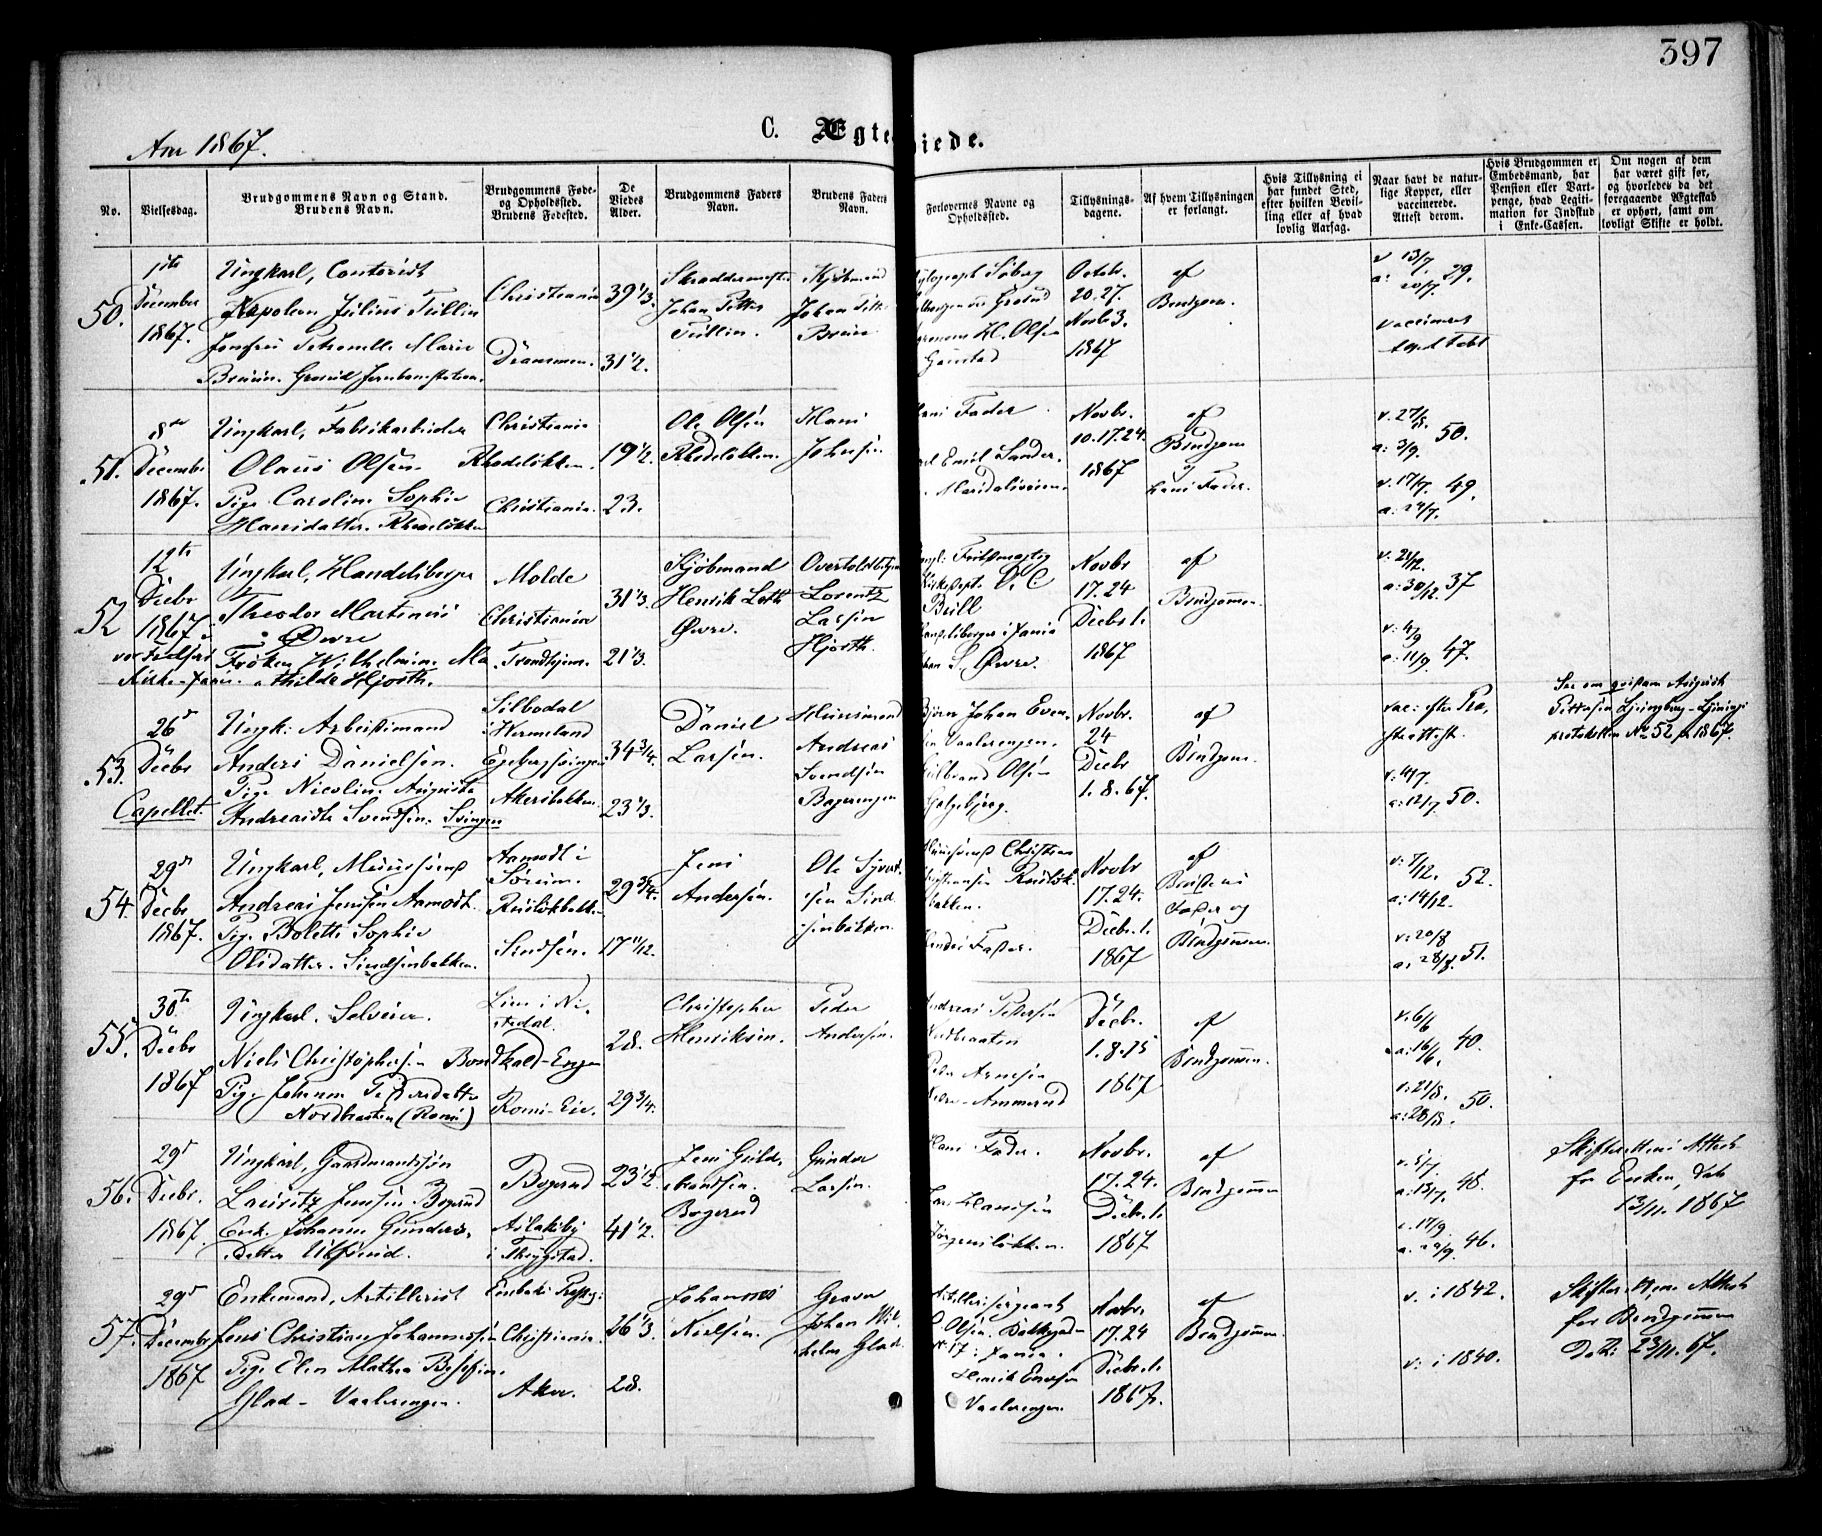 397
C. Ægte viede.
Aar 1867.
No.
Vielsesdag.
Brudgommens Navn og Stand.
Brudens Navn.
Brudgommens Føde-
og Opholdssted.
Brudens Fødested.
De
Viedes
Alder.
Brudgommens Faders
Navn.
Brudens Faders
Navn.
Forlovernes Navne og
Opholdssted.
Tillysnings-
dagene.
Af hvem Tillysningen
er forlangt.
Hvis Tillysning ei
har fundet Sted,
efter hvilken Bevil-
ling eller af hvad
lovlig Aarsag.
Naar havt de natur-
lige Kopper, eller
vaccinerede.
Attest derom.
Hvis Brudgommen er
Embedsmand, har
Pension eller Vart-
penge, hvad Legiti-
mation for Indskud
i Enke-Cassen.
Om nogen af dem
har været gift før,
og hvorledes da det
foregaaende Ægteskab
er ophørt, samt om
lovligt Skifte er holdt.
50.
1ste
December
1867.
Ungkarl, Contorist
Napoleon Julius Tullin
Jomfru Petronelle Marie
Bruun. Grorud Jernbanestation.
Christiania
Drammen.
39 1/3.
31 1/2.
Skræddermester
Johan Petter
Tullin.
Kjøbmand
Johan Petter
Bruun
Søberg
Grorud
H. Olsen
Octobr.
20. 27.
Novbr 3.
1867
af
Brudgom.
v 13/7
29.
vaccineret
51.
8de
December
1867.
Ungkarl, Fabrikarbeider
Olaus Olsen.
Pige Caroline Sophie
Hansdatter. Rhodeløkken
Christiania
Rhodeløkken.
Christiania.
19 1/2.
23.
Ole Olsen
Rhodeløkken.
Hans
Johnsen
Fader.
Emil Sander.
Maridalsveien.
Novbr.
10. 17. 24.
1867
af
Brudgom
Fader.
v. 27/8.
a: 3/9. 50.
v. 17/7. 49.
a. 24/7.
52
12te
Decbr
1867 i
vor Frelsers
Kirke
Ungkarl, Handelsborger
Theodor Martinus
Øvre
Frøken Wilhelmine Ma
thilde Hjorth.
Molde
Christiania
Trondhjem.
31 1/3.
21 1/3.
Kjøbmand
Henrik Loth
Øvre.
Overtoldbetjent
Lorentz
Larsen
Hjorth.
O. C
Brill
S. Øvre.
Novbr
17. 24
Decbr 1.
1867
af
Brudgommen.
v: 21/12.
a: 30/12. 37
v: 4/9
a: 11/9 47.
53.
26d
Decbr
Capellet.
Ungk: Arbeidsmand
Anders Danielsen.
Pige Nicoline Augusta
Andreasdtr Svendsen. Svingen
Silbodal
i Vermeland
Egebergsvingen
Akersbakken.
34 3/4.
23 1/3.
Daniel
Larsen.
Huusmand
Andreas
Svendsen
Bogerengen
Bjørn Johan Even,
sen Vaalerengen.
Olsen
Galgebjerg.
Novbr.
24
Decbr
1. 8. 67.
af
Brudgom.
vac: efter Præ,
steattest.
v: 4/7.
a: 12/7 50.
protokollen No 52 p. 1867.
54.
29de
Decbr
1867.
Ungkarl, Muursvend
Andreas Jensen Aamodt.
Pige Bolette Sophie
Olsdatter. Sindsenbakken.
Aamodt i
Sørum.
Ruseløkbakken
Sindsen.
29 3/4.
17 11/12.
Jens
Andersen.
Ole Syvert
sen Sind
senbakken.
Muursvend Christian
Christiansen Ruseløk
bakken.
Fader.
Novbr
17. 24.
Decbr. 1.
1867
af
Brudens
Fader og
Brudgommen.
v: 7/12. 52.
a: 14/12.
v: 20/8
a: 28/8. 51.
55.
30te
Decbr
1867
Ungkarl. Selveier.
Niels Christophersen Bondkald-Engen
Pige Johanne Pedersdatter
Nordbraaten (Romi)
Romi-Eie.
28.
29 3/4.
Christopher
Henriksen.
Peder
Andersen.
Andreas Pettersen
Nordbraaten
Peder Arnesen
Ammerud
Decbr.
1. 8. 15
1867
af
Brudgommen.
v. 6/6
a: 16/6. 40.
v: 21/8.
a: 28/8. 50.
56.
29d
Decbr.
1867.
Ungkarl, Gaardmandssøn
Lauritz Jensen Bogerud
Enke Johanne Gunders,
datter Ulsrud.
Bogerud
Aslakby
i Trygstad.
23 1/2.
41 1/2.
Jens Guld,
brandsen.
Bogerud
Gunder
Larsen.
Hans Fader.
Hansen
Jørgensløkken.
Novbr.
17. 24.
Decbr. 1.
1867
af
Brudgommen
v: 5/7.
a: 13/7. 48.
v. 17/9.
a. 29/9. 46.
Skifterettens Attest
for Enken, dat
13/11. 1867
57.
29d
December
1867
Enkemand, Artillerist
Jens Christian Johannessen
Pige Elen Mathea Josefine
Glad - Vaalerengen.
Enebak Præstegj:
Christiania.
Aker.
26 1/3.
28.
Johannes
Nielsen.
Graver
Johan Wil
helm Glad.
Artillerisergeant
Olsen.
No 17 i
Henrik
Vaalerengen.
Novbr.
17. 24
Decbr. 1.
1867.
af
Brudgommen
v. i 1842.
v: i 1840.
Skifterettens Attest
for Brudgommen
Dat: 23/11. 67.